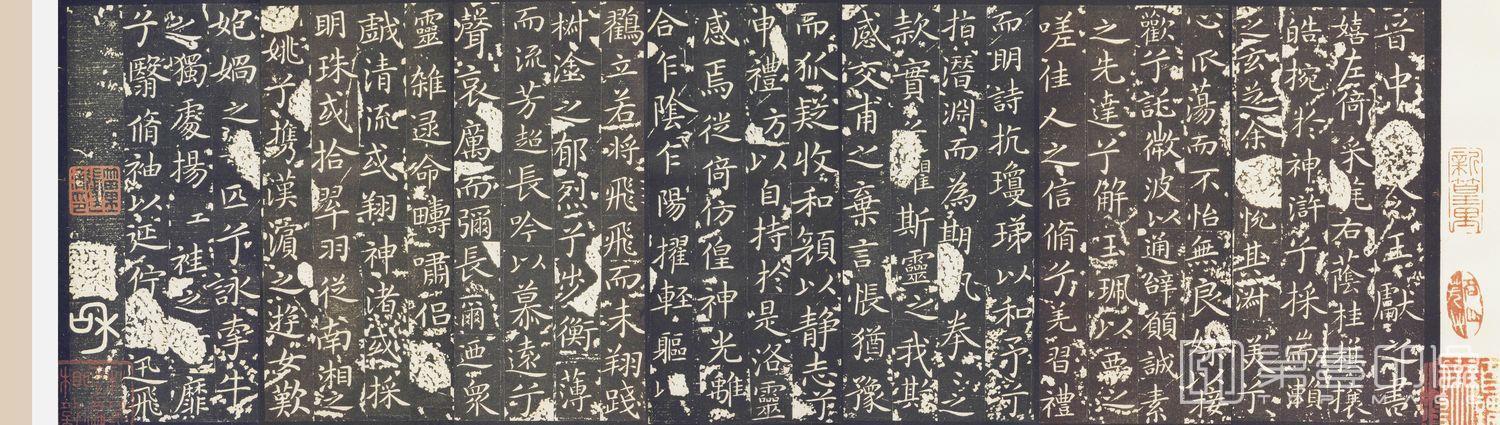 晉中令王獻之書
嬉左倚采旄右蔭桂旗攘
皓捥於神滸兮採湍瀨
之玄芝余悅其淑美兮
心蕩而不怡無良媒接
歡兮託微波以通辭願誠素
之先達兮解玉珮以要之
嗟佳人之信脩兮羌習禮
而明詩抗瓊珶以和予兮
指潛淵而為期執拳之
款實兮懼斯靈之我欺
感交甫之棄言悵猶豫
而狐疑收和顏以静志兮
申禮方以自持於是洛靈
感焉徙倚仿偟神光離
合乍陰乍陽擢輕軀以
鶴立若將飛飛而未翔踐
椒塗之郁烈兮步衡薄
而流芳超長吟以慕遠兮
聲哀厲而彌長爾迺衆
靈雜逯命疇嘯侶
戲清流或翔神渚或採
明珠或拾翠羽從南湘之
姚兮攜漢濱之遊女歎
妑媧之匹兮詠牽牛
之獨處揚袿之靡
兮翳脩袖以延佇迅飛